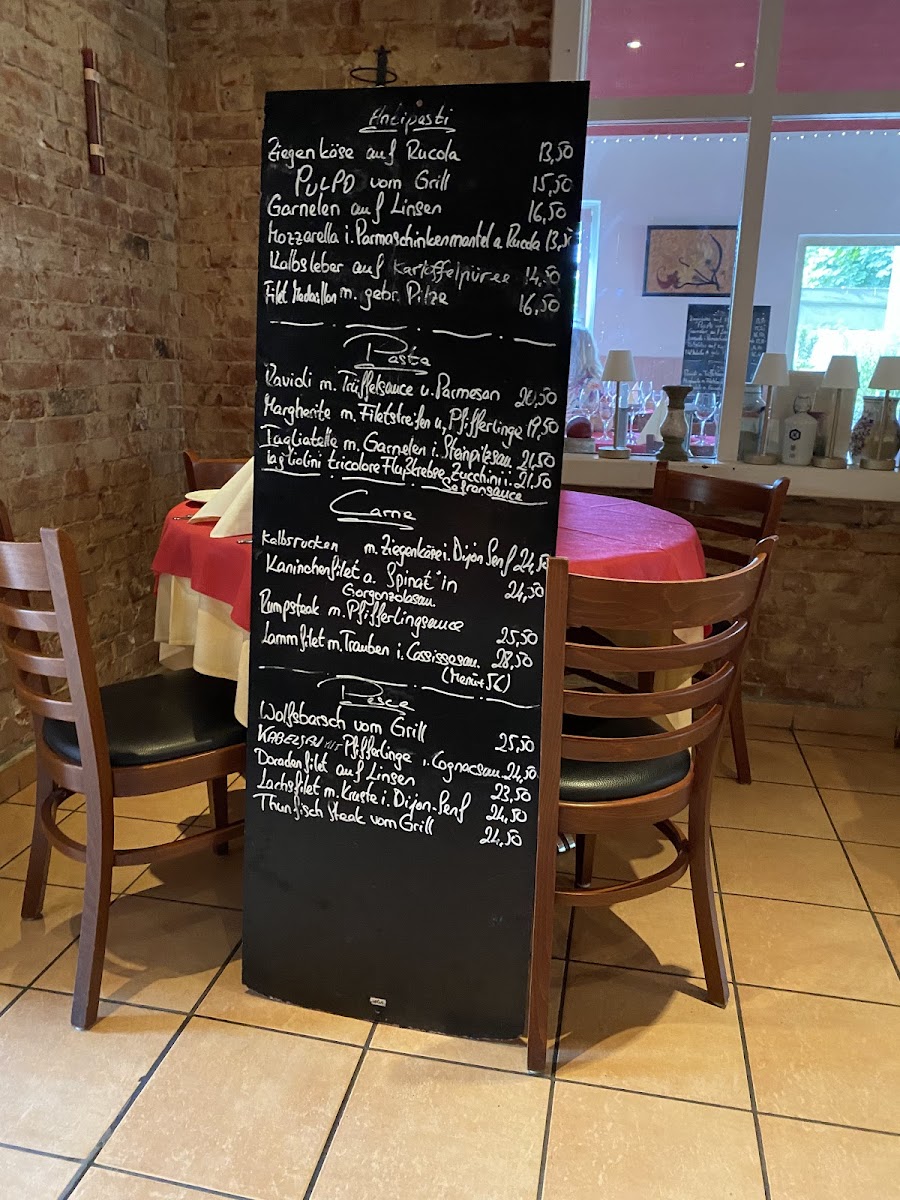 Antipasti
Ziegenkäse auf Rucola 13,50
PULPO vom Grill 15,50
Garnelen auf Linsen 16,50
Mozzarella i. Parmaschinkenmantel a Rucola 13,50
Kalbsleber auf Kartoffelpüree 14,50
Filet Medaillon m. gebr. Pilze 16,50
Pasta
Ravioli m. Trüffelsauce u. Parmesan 20,50
Margherite m. Filetstreifen u, Pfifferlinge 19,50
Tagliatelle m. Garnelen i. Steinpilzsau. 21,50
Tagliolini tricolore Flußkrebse Zucchini i. 21,50
Safransauce
Carne
Kalbsrücken m. Ziegenkäse i. Dijon Senf 24,50
Kaninchenfilet a. Spinat in 24,50
Gorgonzolasau.
Rumpsteak m. Pfifferlingsauce 25,50
Lammfilet m. Trauben i. Cassissau. 28,50
(Menü+5€)
Pesce
Wolfsbarsch vom Grill 25,50
KABELJAU MIT Pfifferlinge i. Cognacsau. 24,50
Doradenfilet auf Linsen 23,50
Lachsfilet m. Kruste i. Dijon-Senf 24,50
Thunfisch Steak vom Grill 24,50